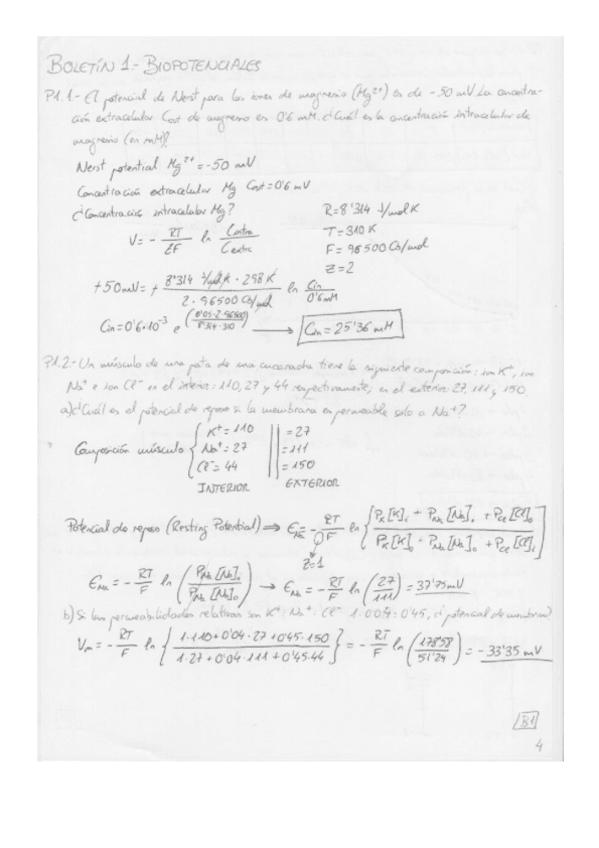 BOLETÍN 1.- BIOPOTENCIALES
P1.1.- El potencial de Nerst para los iones de magnesio (Mg²⁺) es de -50 mV. La concentra-
ción extracelular Cout de magnesio es 0'6 mM. ¿Cuál es la concentración intracelular de
magnesio (en mM)?
Nerst potential Mg²⁺ = -50 mV
Concentración extracelular Mg Cout = 0'6 mV
¿Concentración intracelular Mg?
R = 8'314 J/mol K
V = - RT/ZF ln Cintra/Cextra
T = 310 K
F = 96500 Cb/mol
Z = 2
+50mV = + 8'314 J/mol K · 298 K / 2 · 96500 Cb/mol ln Cin/0'6 mM
Cin = 0'6·10⁻³ e^(0'05·2·96500/8'314·310) → Cin = 25'36 mM
P1.2.- Un músculo de una pata de una cucaracha tiene la siguiente composición: ion K⁺, ion
Na⁺ e ion Cl⁻ en el interior: 110, 27 y 44 respectivamente, en el exterior: 27, 111 y 150
a) ¿Cuál es el potencial de reposo si la membrana es permeable solo a Na⁺?
K⁺ = 110 || = 27
Composición músculo { Na⁺ = 27 || = 111
Cl⁻ = 44 || = 150
INTERIOR EXTERIOR
Potencial de reposo (Resting Potential) ⇒ ϵNa = - RT/F ln { PK[K]i + PNa[Na]i + PCl[Cl]o / PK[K]o + PNa[Na]o + PCl[Cl]i }
Z=1
ϵNa = - RT/F ln ( PNa[Na]i / PNa[Na]o ) → ϵNa = - RT/F ln ( 27/111 ) = 37'75 mV
b) Si las permeabilidades relativas son K⁺: Na⁺: Cl⁻ 1:0.04:0'45, ¿potencial de membrana?
Vm = - RT/F ln { 1·110 + 0'04·27 + 0'45·150 / 1·27 + 0'04·111 + 0'45·44 } = - RT/F ln ( 178'58 / 51'24 ) = -33'35 mV
B1
4